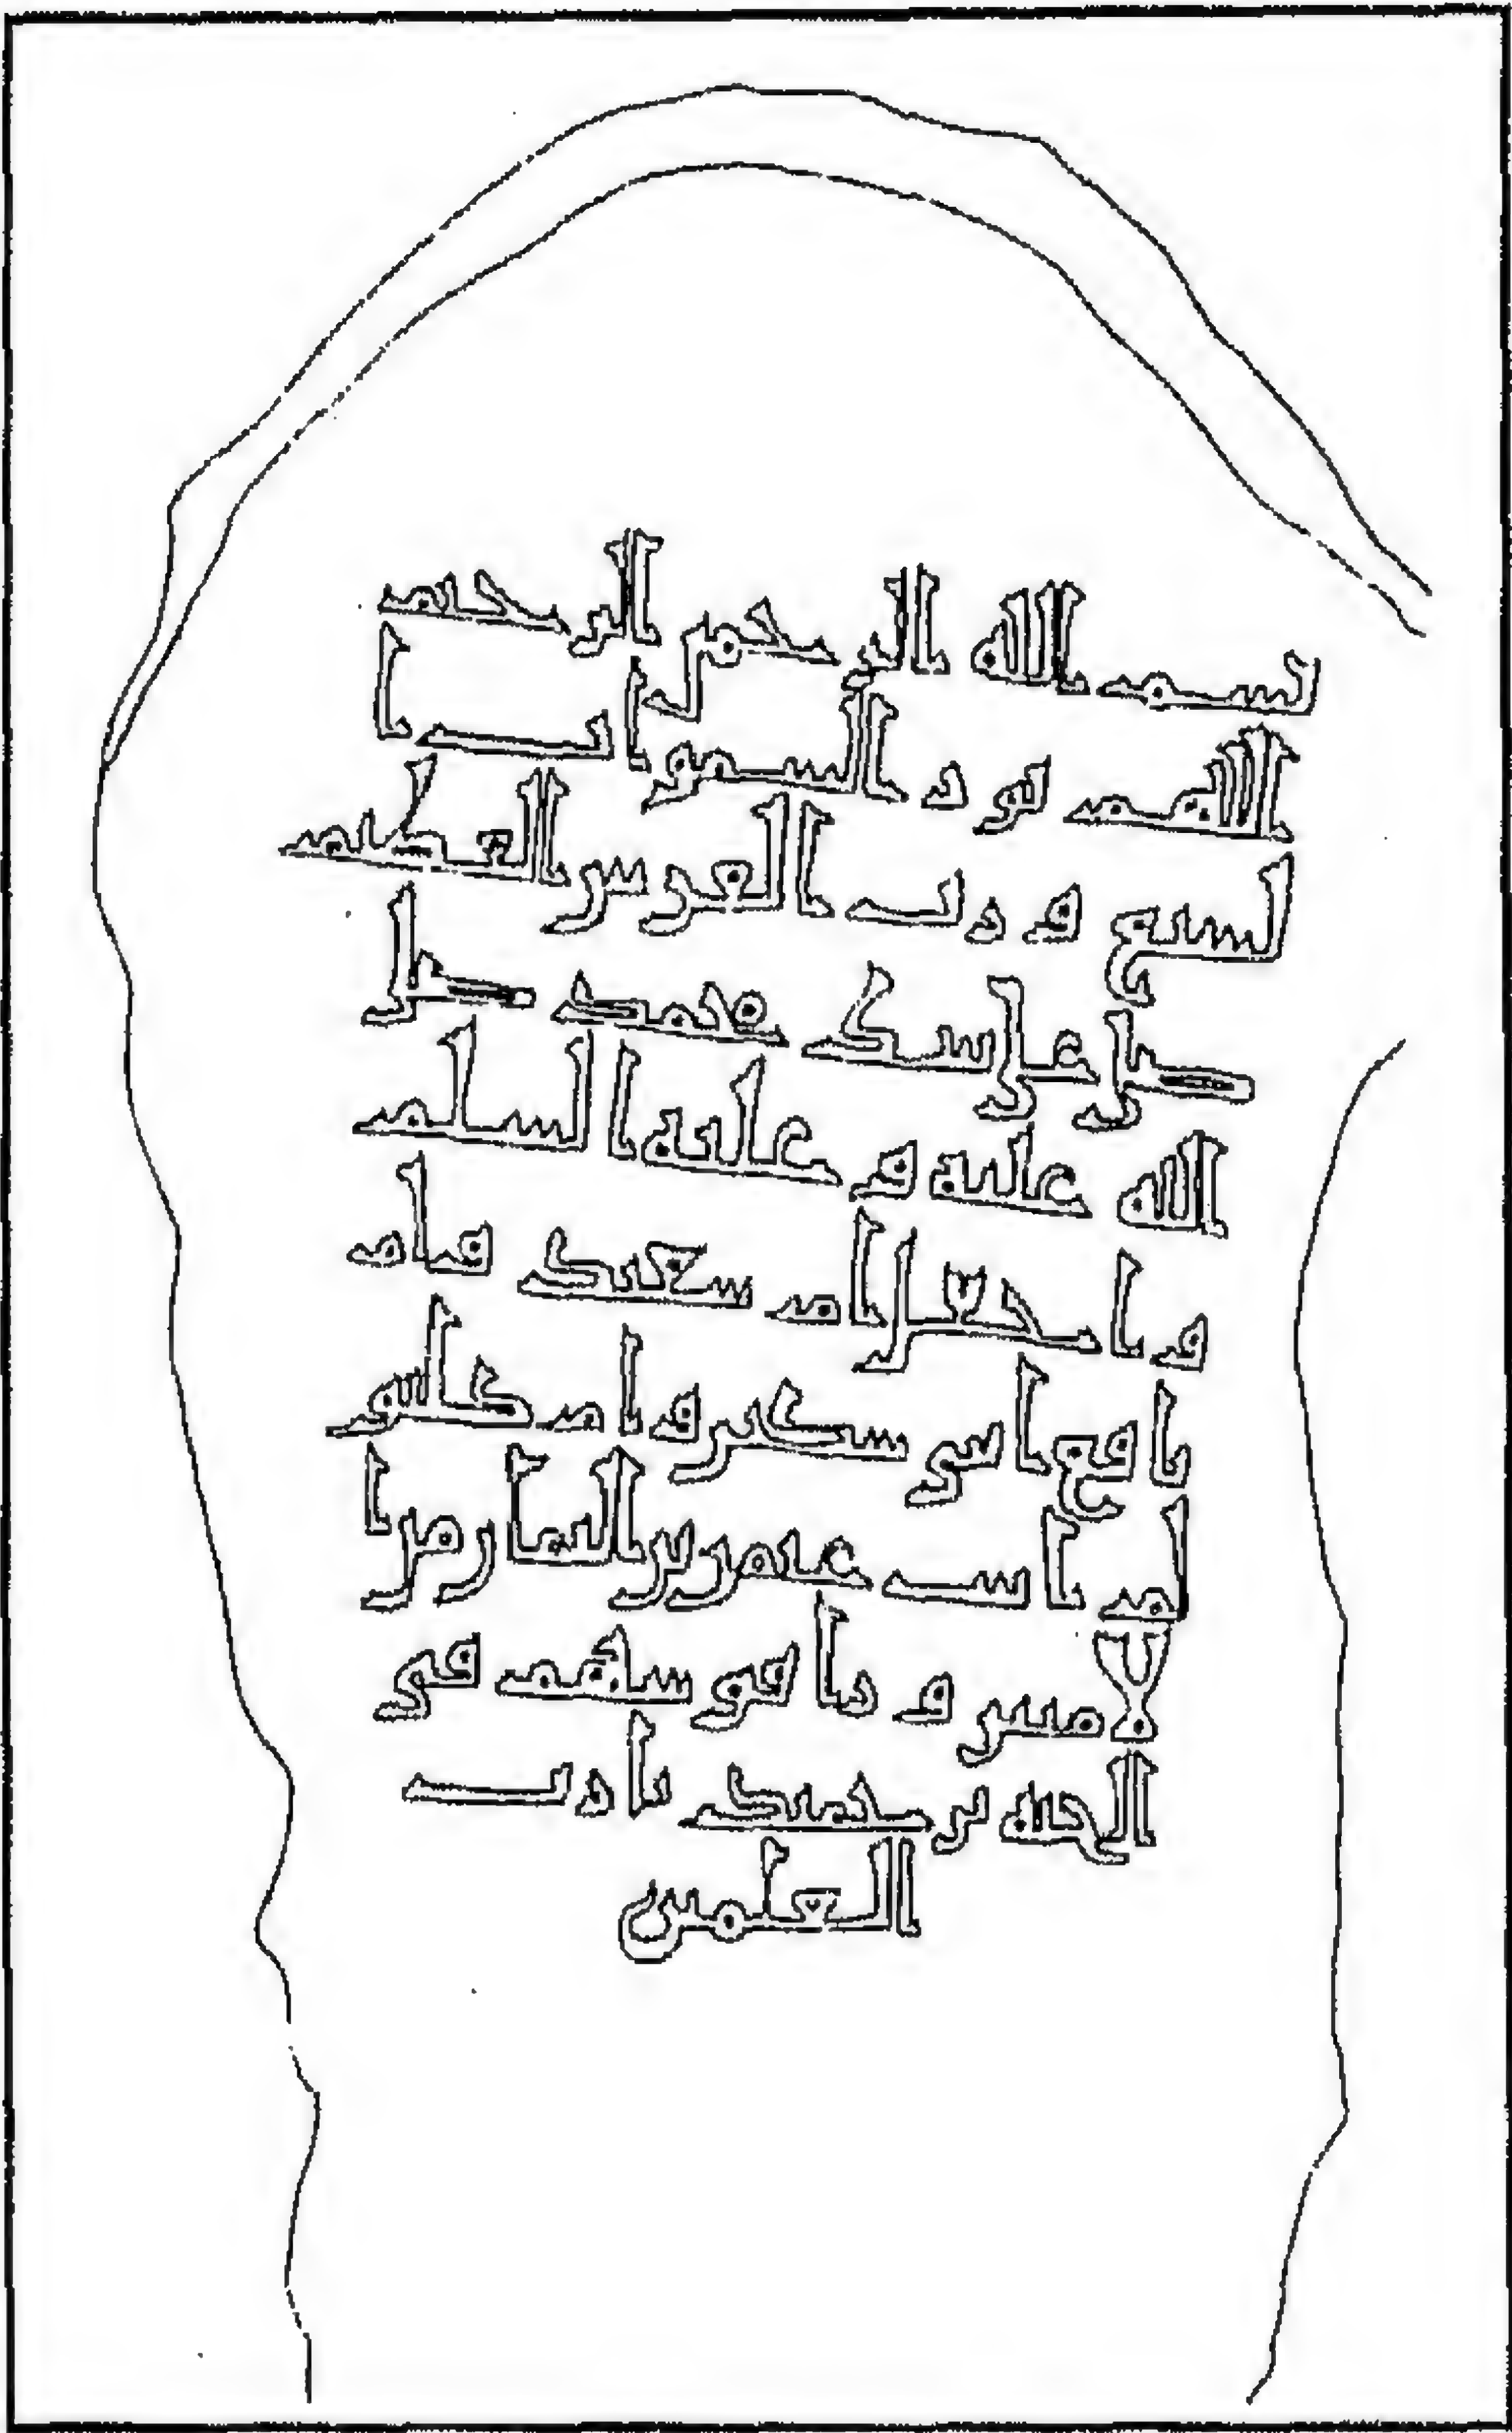 بسم الله الرحمن الرحيم
اللهم نور السموات ا
لسبع ورب العرش العظيم
صلي على نبيك محمد صلى
الله عليه وعليه السلم
واجعل ام سعيد وام
نافع وام كلثو
م ابنت عمرو بن من ا
لامنين ورافق بينهم في
الجنة برحمتك يا رب
العلمين